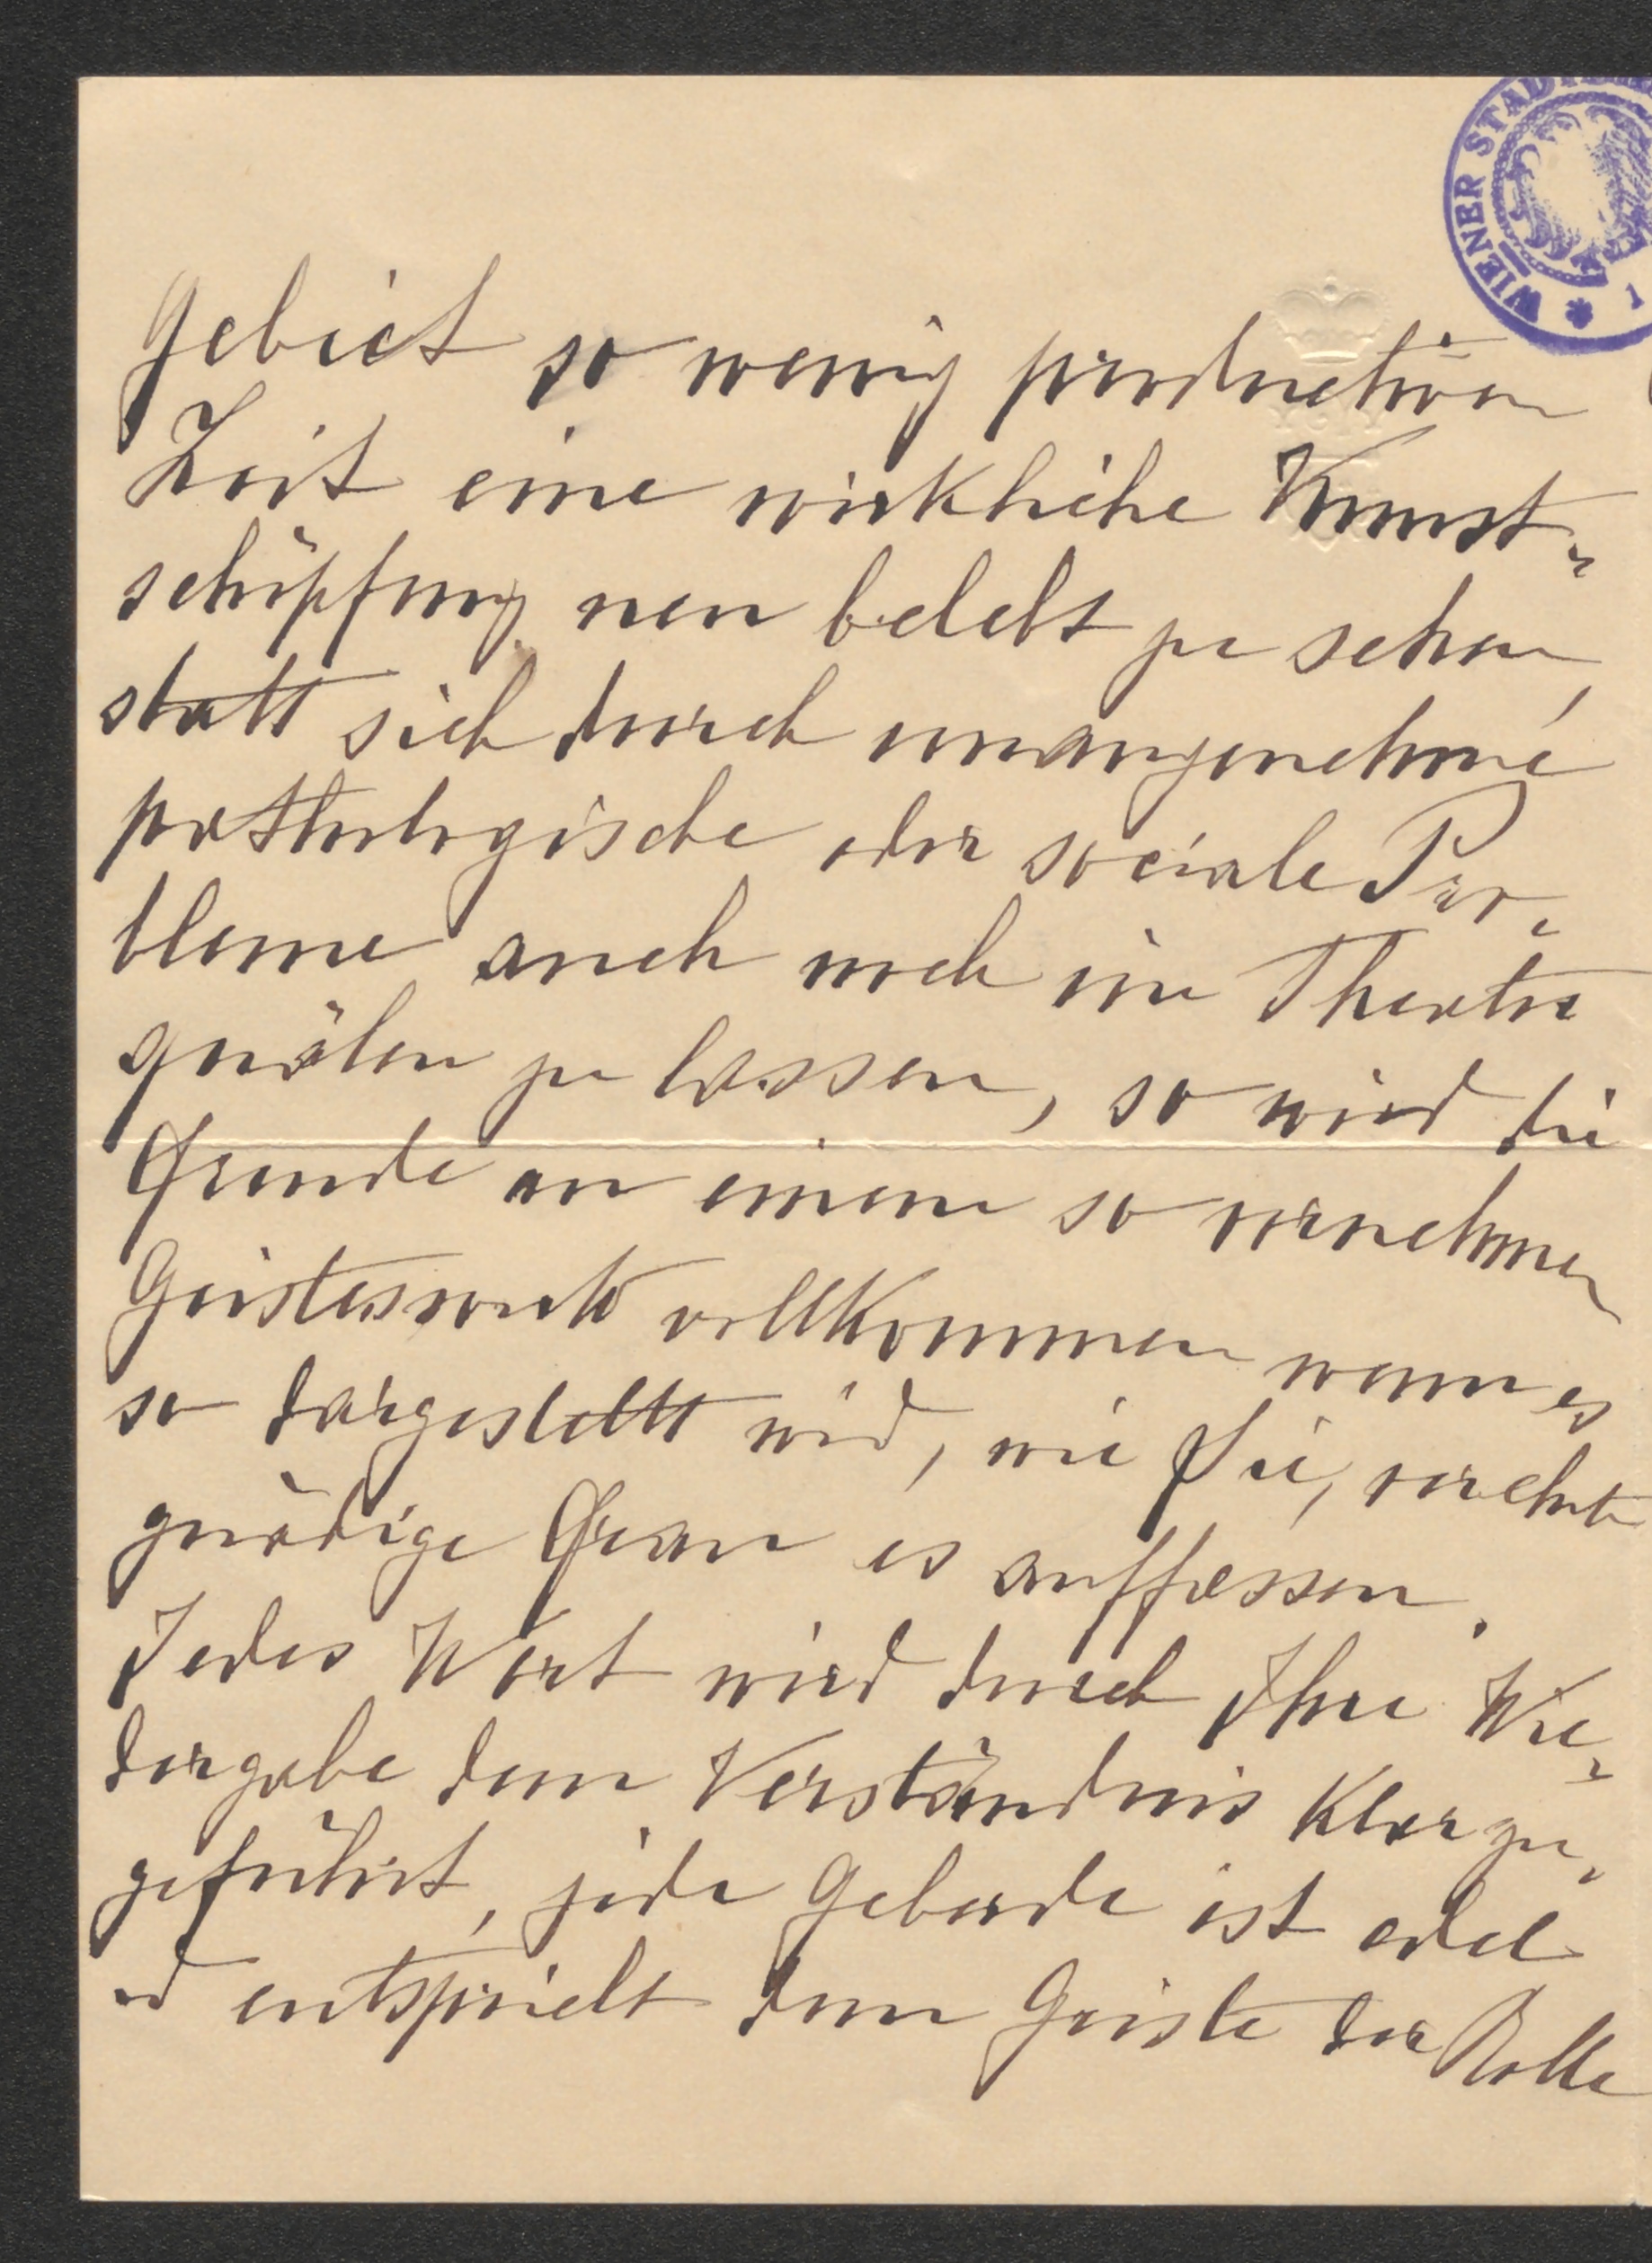 WIENER STADT
Gebiet so wenig productiven
Zeit eine wirkliche Kunst-
schöpfung neu belebt zu sehen,
statt sich durch unangenehme
pathologische oder sociale Pro-
bleme auch noch im Theater
quälen zu lassen, so wird die
Freude an einem so vornehmen
Geisteswerk vollkommen wenn es
so dargestellt wird, wie Sie, verehrte
gnädige Frau es auffassen.
Jedes Wort wird durch Ihre Wie-
dergabe dem Verständnis klar zu-
geführt, jede Geberde ist edel
u entspricht dem Geiste der Rolle